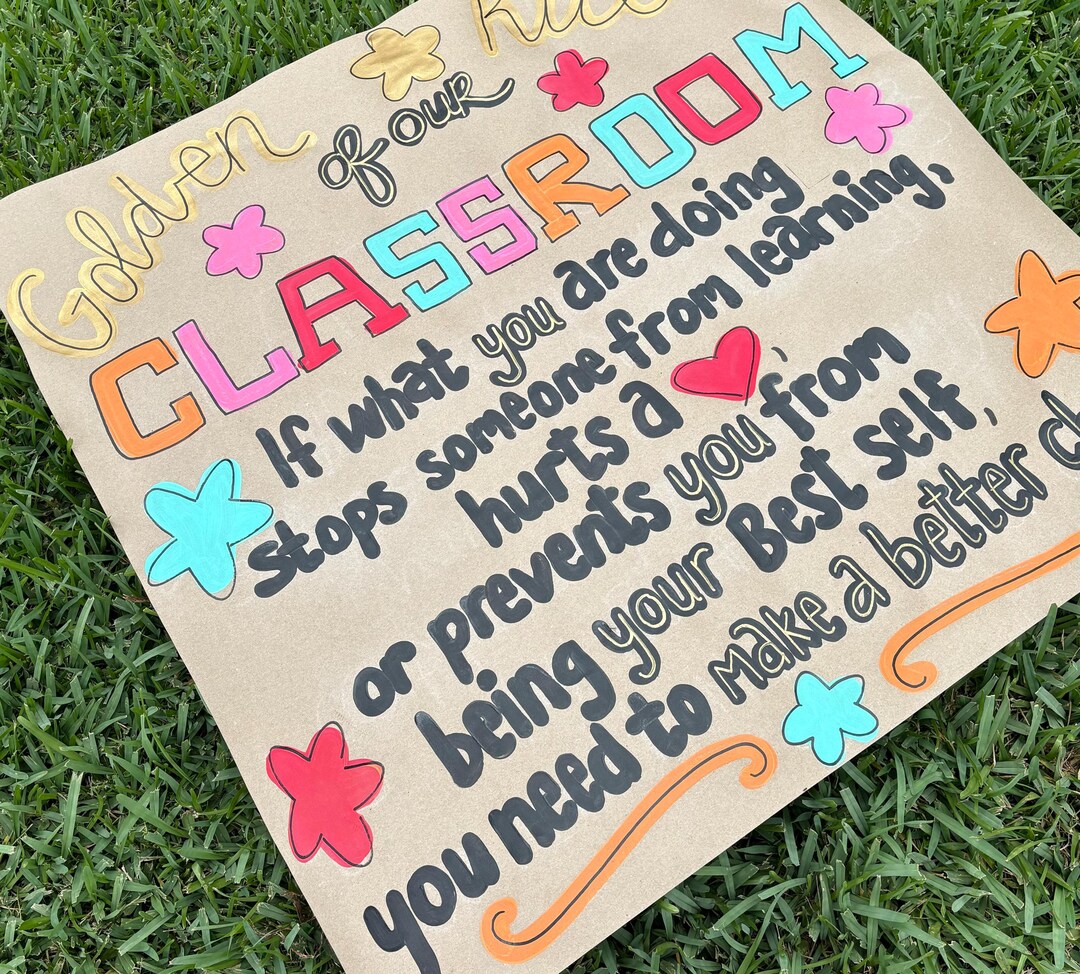 Golden
of our
CLASSROOM
If what you are doing
stops someone from learning,
hurts a ,
or prevents you from
being your Best self,
you need to make a better